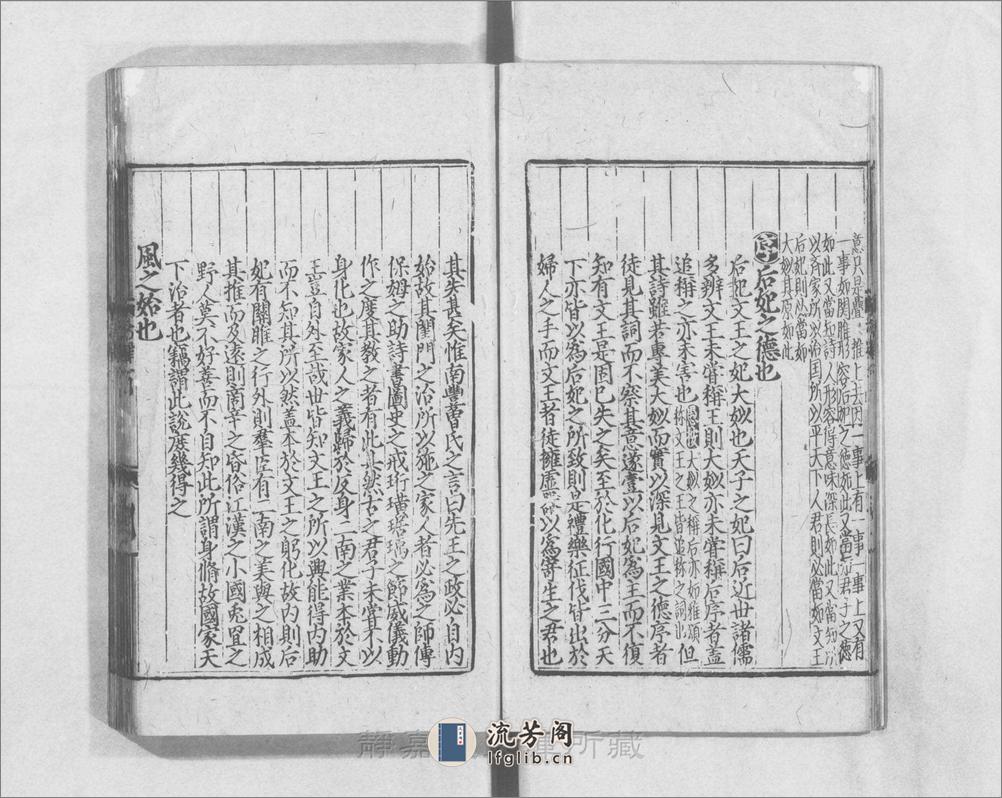 意只是疊疊推上去因一事上有一事一事上又有
一事如關雎形容后妃之德如此又當知君子之德
如此又當知詩人形容得意味深長如此又當知所
以齊家所以治国所以平天下人君則必當如文王
后妃則必當如
大姒其原如此
序后妃之德也
后妃文王之妃大姒也天子之妃曰后近世諸儒
多辨文王未嘗稱王則大姒亦未嘗稱后序者蓋
追稱之亦未害也 大姒之稱后亦如雅頌稱文王之王皆追稱之詞也 但
其詩雖若專美大姒而實以深見文王之德序者
徒見其詞而不察其意遂壹以后妃為主而不復
知有文王是固已失之矣至於化行國中三分天
下亦皆以為后妃之所致則是禮樂征伐皆出於
婦人之手而文王者徒擁虛器以為寄生之君也
其失甚矣惟南豐曾氏之言曰先王之政必自内
始故其閨門之治所以施之家人者必為之師傅
保姆之助詩書圖史之戒珩璜琚瑀之節威儀動
作之度其教之者有此具然古之君子未嘗不以
身化也故家人之義歸於反身二南之業本於文
王豈自外至哉世皆知文王之所以興能得内助
而不知其所以然蓋本於文王之躬化故内則后
妃有關雎之行外則羣臣有二南之美與之相成
其推而及遠則商辛之昏俗江漢之小國兎罝之
野人莫不好善而不自知此所謂身脩故國家天
下治者也竊謂此說庶幾得之
風之始也
静嘉 所藏
流芳阁
lfglib.cn